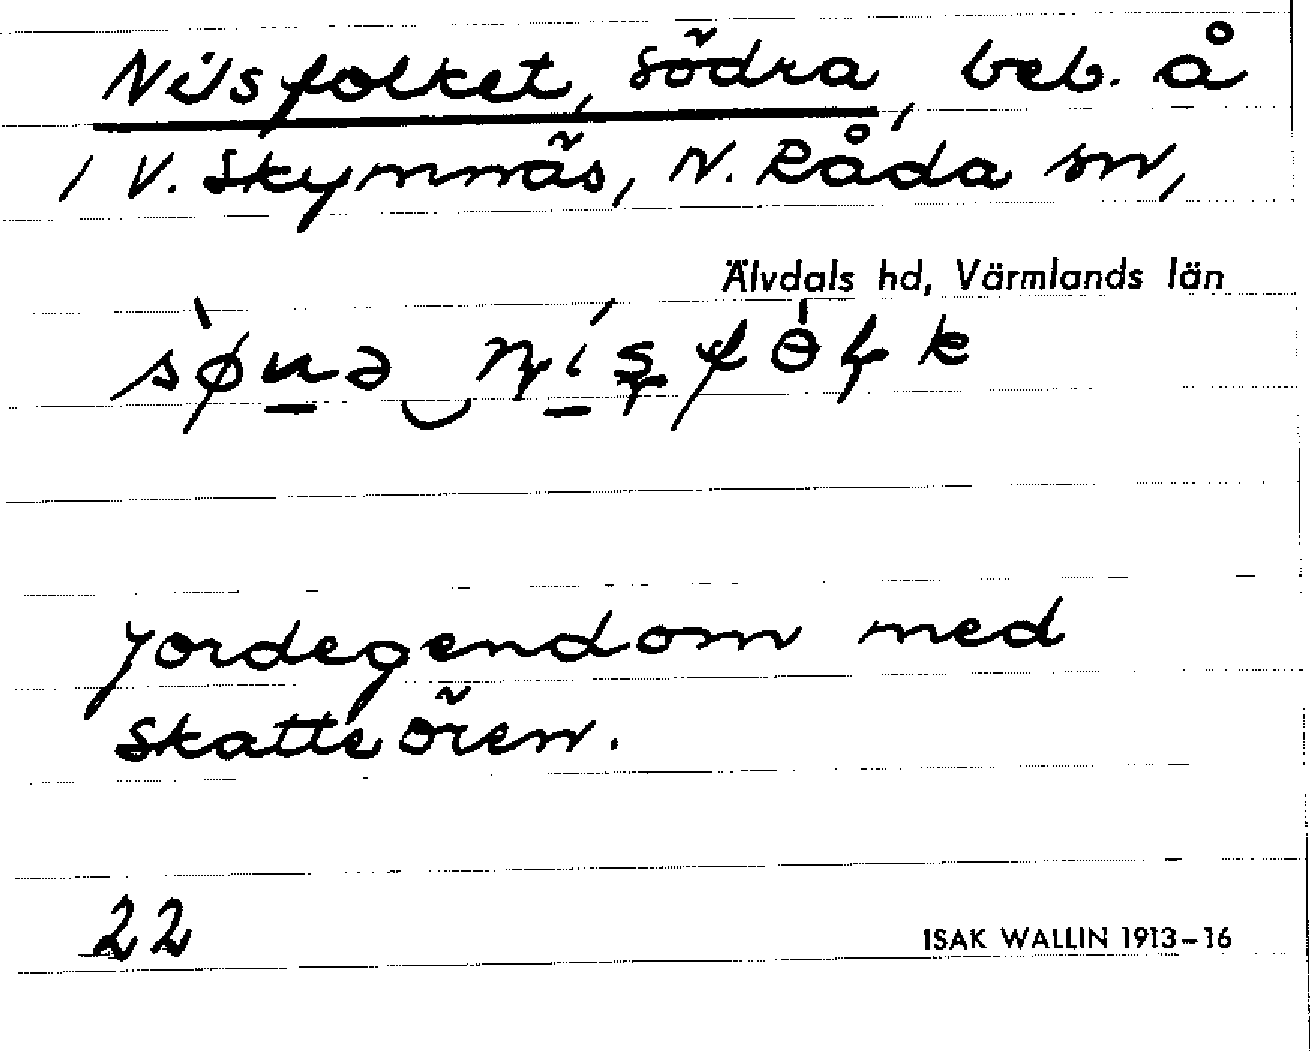 Nilsfolket, södra, beb. å
1 V. Skymnäs, N. Råda sn,
Älvdals hd, Värmlands län
Jordegendom med
skatteören.
22
ISAK WALLIN 1913–16